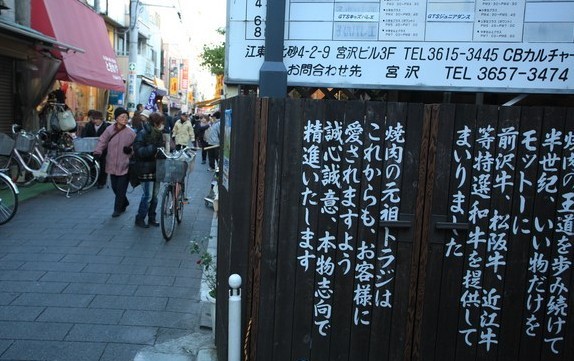 GTSキッズバレエ
GTSジュニアダンス
江東区北砂4-2-9 宮沢ビル3F TEL3615-3445 CBカルチャー
お問合わせ先 宮沢 TEL 3657-3474
焼肉の王道を歩み続けて
半世紀、いい物だけを
モットーに
前沢牛、松阪牛、近江牛
等特選和牛を提供して
まいりました
焼肉の元祖トラジは
これからも、お客様に
愛されますよう
誠心誠意、本物志向で
精進いたします